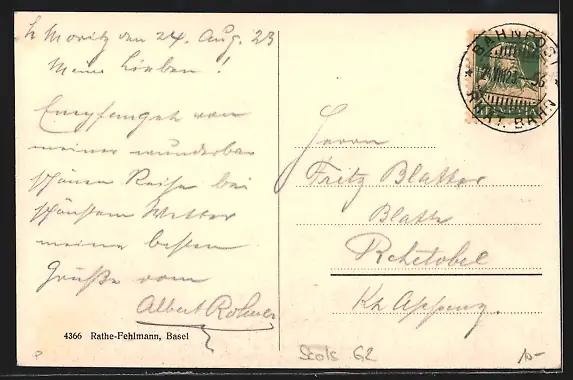 St. Moritz den 24. Aug. 23
Meine Lieben!
Empfanget von
meiner wunderbar
schönen Reise bei
schönstem Wetter
meine besten
Grüße vom
Albert Rohner
4366 Rathe-Fehlmann, Basel
BAHNPOST
24.VIII.23
RHÄT. BAHN
Herrn
Fritz Blatter
Blatte
Rehetobel
Kt. Appenz.
Scols G2
10-